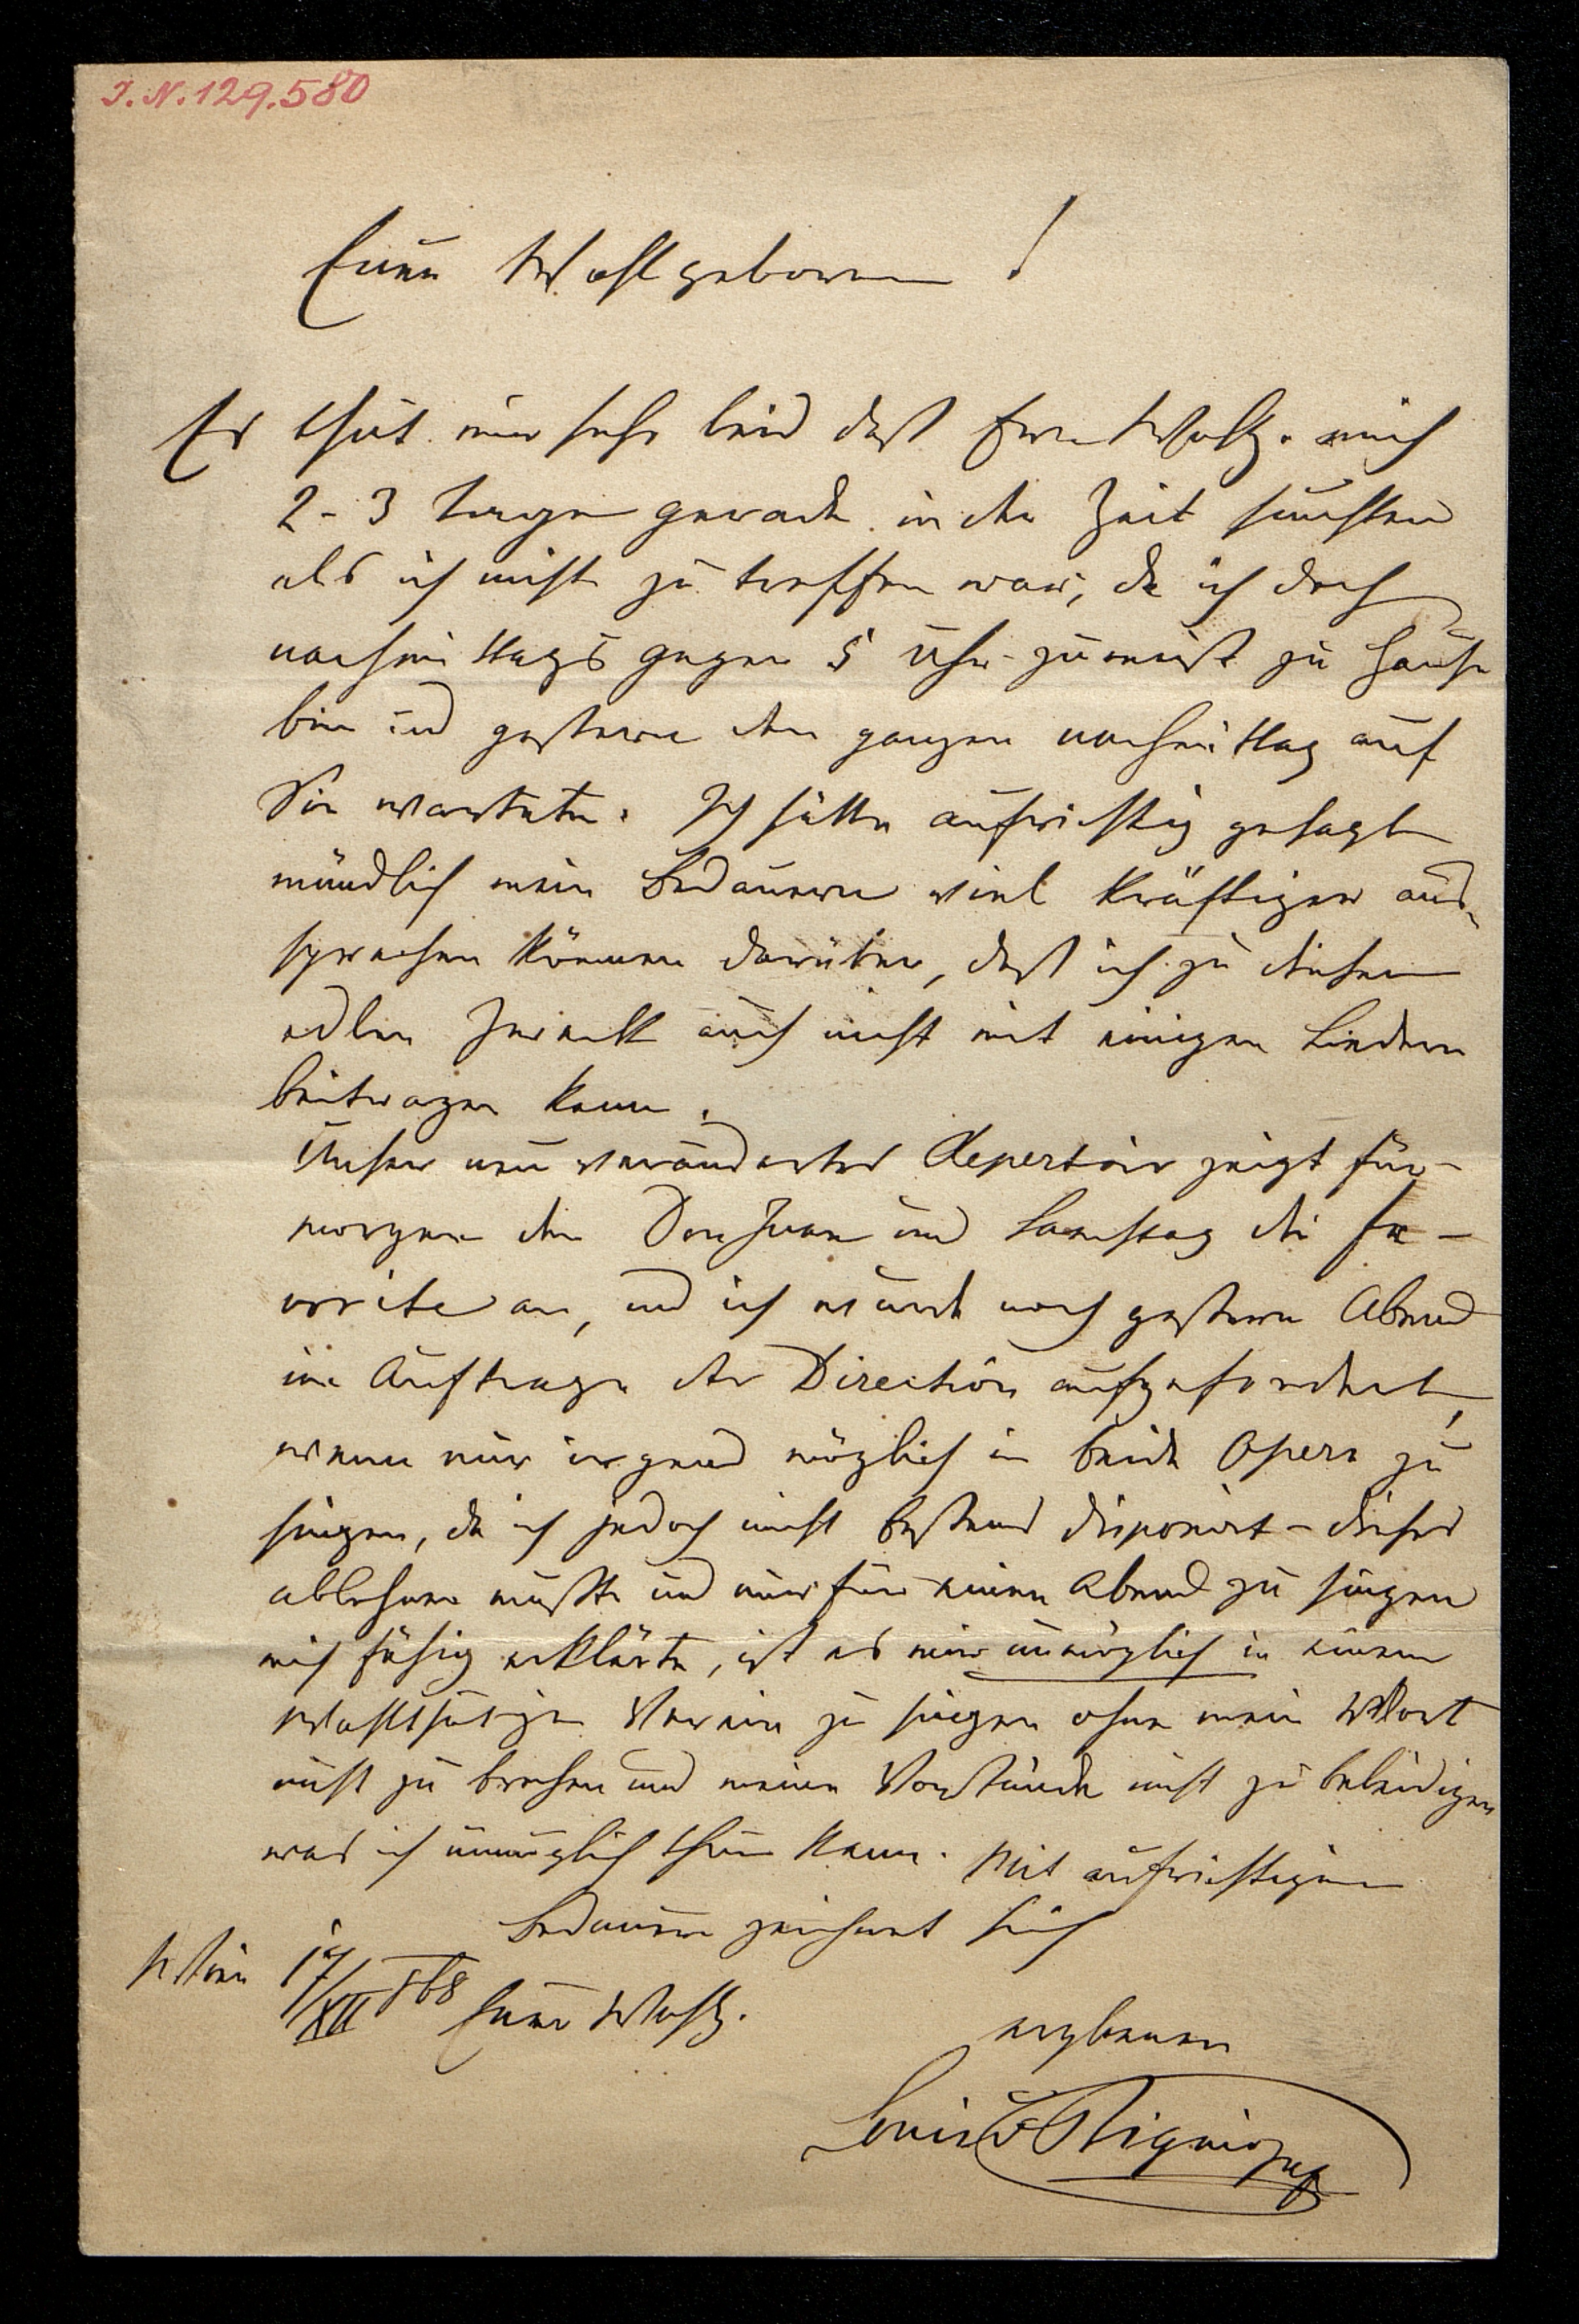 I. N. 129.580
Euer Wohlgeboren!
Es thut mir sehr leid daß Euer Wohlg. mich
2-3 Tage gerade in der Zeit suchten
als ich nicht zu treffen war, da ich doch
nachmittags gegen 5 Uhr zumeist zu Hause
bin und gestern den ganzen Nachmittag auf
Sie wartete. Ich hätte aufrichtig gesagt
mündlich mein Bedauern viel kräftiger aus-
sprechen können darüber, daß ich zu diesem
edlen Zweck auch nicht mit einigen Liedern
beitragen kann.
Unser neu verändertes Repertoir zeigt für
morgen den Don Juan und Samstag die Fa-
vorite an, und ich wurde noch gestern Abend
im Auftrage der Direction aufgefordert,
wenn nur irgend möglich in beide Opern zu
singen, da ich jedoch nicht bestens disponirt – dieses
ablehnen mußte und nur für einen Abend zu singen
mich fähig erklärte, ist es mir unmöglich in einem
wohlthätigen Verein zu singen ohne mein Wort
nicht zu brechen und meine Vorstände nicht zu beleidigen
was ich unmöglich thun kann. Mit aufrichtigem
Bedauern zeichnet sich
Wien 17/XII 868 Euer Wohlg.
ergebenen
Louis v Bignio